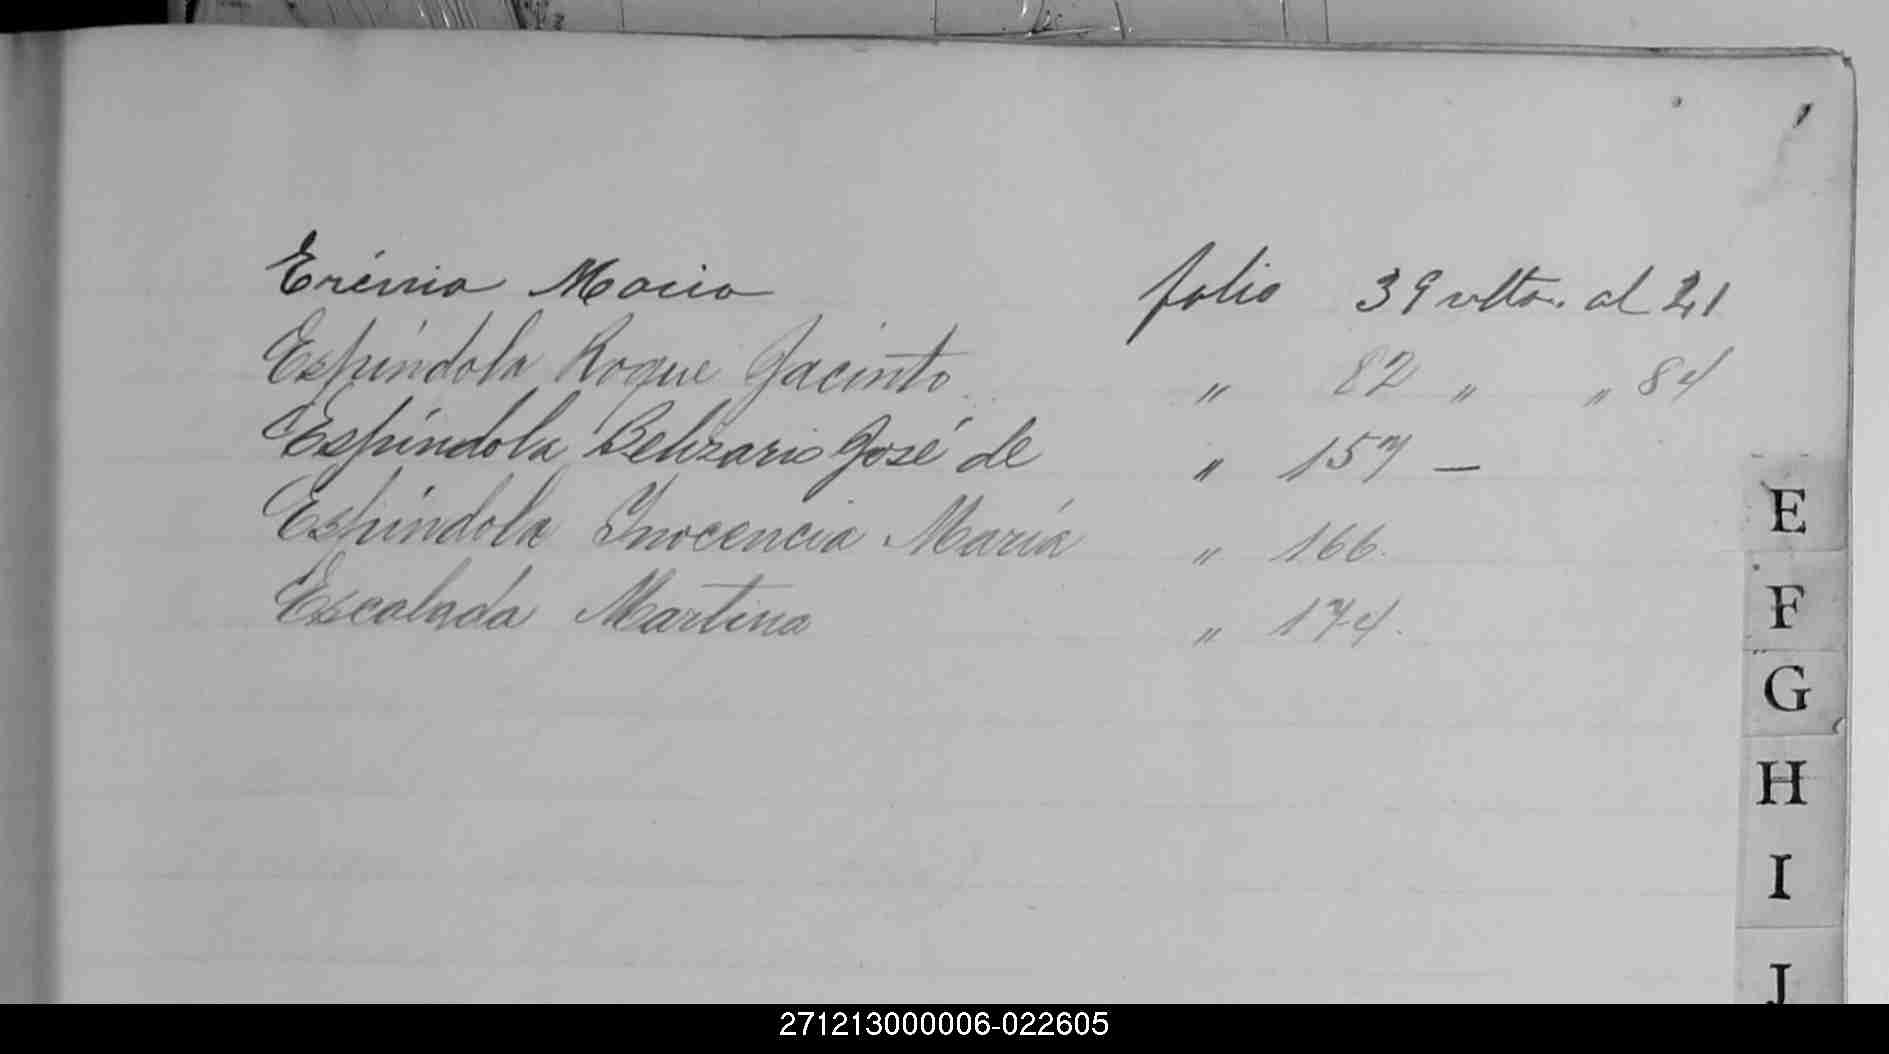 Erémia Maria folio 39 vlta. al 21
Espíndola Roque Jacinto " 82 " " 84
Espíndola Belizario José de " 157 —
Espíndola Inocencia María " 166.
Escalada Martina " 174.
E
F
G
H
I
J
271213000006-022605